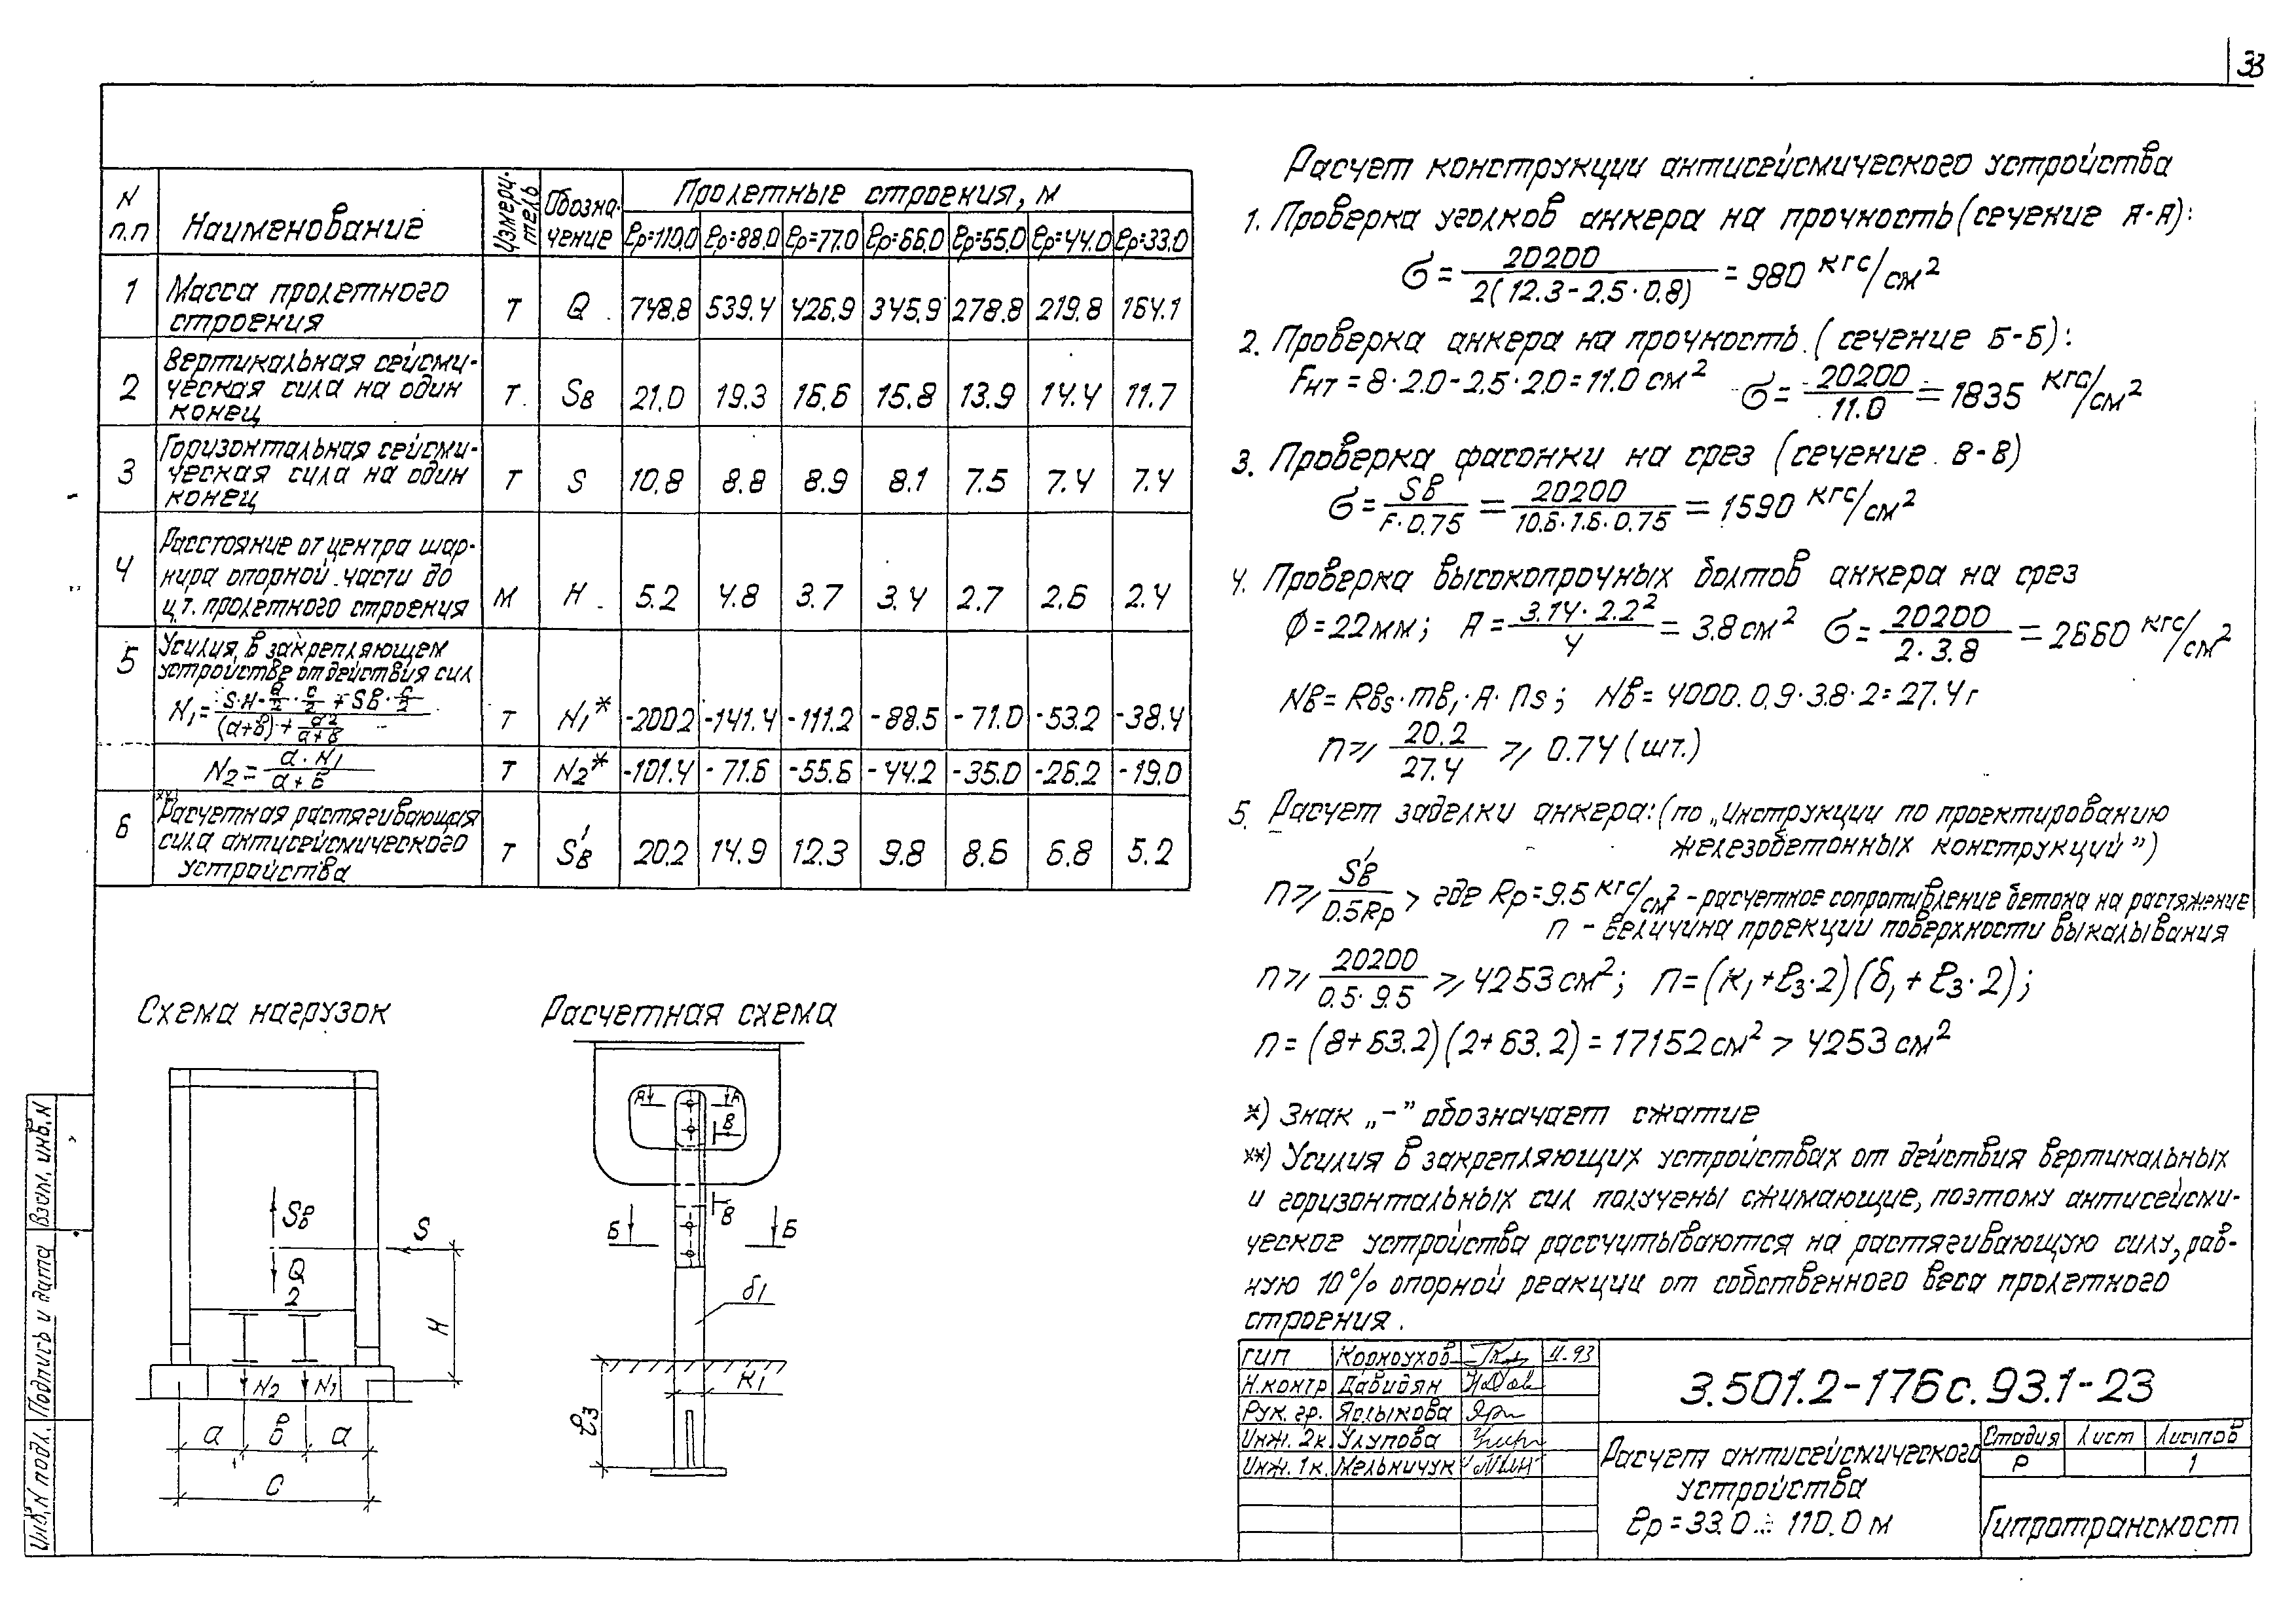 33
N п.п
Наименование
Измеритель
Обозначение
Пролетные строения, м
ℓр=110.0 ℓр=88.0 ℓр=77.0 ℓр=66.0 ℓр=55.0 ℓр=44.0 ℓр=33.0
1 Масса пролетного строения т Q 748.8 539.4 426.9 345.9 278.8 219.8 164.1
2 Вертикальная сейсмическая сила на один конец т Sв 21.0 19.3 16.6 15.8 13.9 14.4 11.7
3 Горизонтальная сейсмическая сила на один конец т S 10.8 8.8 8.9 8.1 7.5 7.4 7.4
4 Расстояние от центра шарнира опорной части до ц.т. пролетного строения м H 5.2 4.8 3.7 3.4 2.7 2.6 2.4
5 Усилия в закрепляющем устройстве от действия сил
N1 = (S·H·a/2·c/2 + Sв·c/2) / ((a+в)+a²/(a+в)) т N1* -200.2 -141.4 -111.2 -88.5 -71.0 -53.2 -38.4
N2 = a·N1/(a+в) т N2* -101.4 -71.6 -55.6 -44.2 -35.0 -26.2 -19.0
6 **) Расчетная растягивающая сила антисейсмического устройства т S'в 20.2 14.9 12.3 9.8 8.6 6.8 5.2
Схема нагрузок
Sв
S
Q
2
H
N2 N1
a в a
c
Расчетная схема
А А
В
В
Б Б
δ1
К1
ℓз
Расчет конструкции антисейсмического устройства
1. Проверка уголков анкера на прочность (сечение А-А):
σ = 20200 / 2(12.3-2.5·0.8) = 980 кгс/см²
2. Проверка анкера на прочность (сечение Б-Б):
Fнт = 8·2.0-2.5·2.0 = 11.0 см² σ = 20200/11.0 = 1835 кгс/см²
3. Проверка фасонки на срез (сечение В-В)
σ = Sв/F·0.75 = 20200/10.6·1.6·0.75 = 1590 кгс/см²
4. Проверка высокопрочных болтов анкера на срез
ϕ=22мм; А = 3.14·2.2²/4 = 3.8 см² σ = 20200/2·3.8 = 2660 кгс/см²
Nв = Rвs·mв1·А·пs; Nв = 4000.0,9·3.8·2 = 27.4 т
п ⩾ 20.2/27.4 ⩾ 0.74 (шт.)
5. Расчет заделки анкера: (по „Инструкции по проектированию
железобетонных конструкций”)
п ⩾ S'в/0.5Rр, где Rр=9.5 кгс/см² - расчетное сопротивление бетона на растяжение
п - величина проекции поверхности выкалывания
п ⩾ 20200/0.5·9.5 ⩾ 4253 см²; п=(к1+ℓз·2)(δ1+ℓз·2);
п = (8+63.2)(2+63.2) = 17152 см² > 4253 см²
*) Знак „-” обозначает сжатие
**) Усилия в закрепляющих устройствах от действия вертикальных
и горизонтальных сил получены сжимающие, поэтому антисейсми-
ческое устройства рассчитываются на растягивающую силу, рав-
ную 10% опорной реакции от собственного веса пролетного
строения.
ГИП Корноухов 11.93
Н.контр Давидян
Рук. гр. Ярлыкова
Инж. 2к. Улупова
Инж. 1к. Мельничук
3.501.2-176с.93.1-23
Расчет антисейсмического
устройства
ℓр = 33.0 ÷ 110.0 м
Стадия Лист Листов
Р 1
Гипротрансмост
Взам. инв. N
Подпись и дата
Инв. N подл.